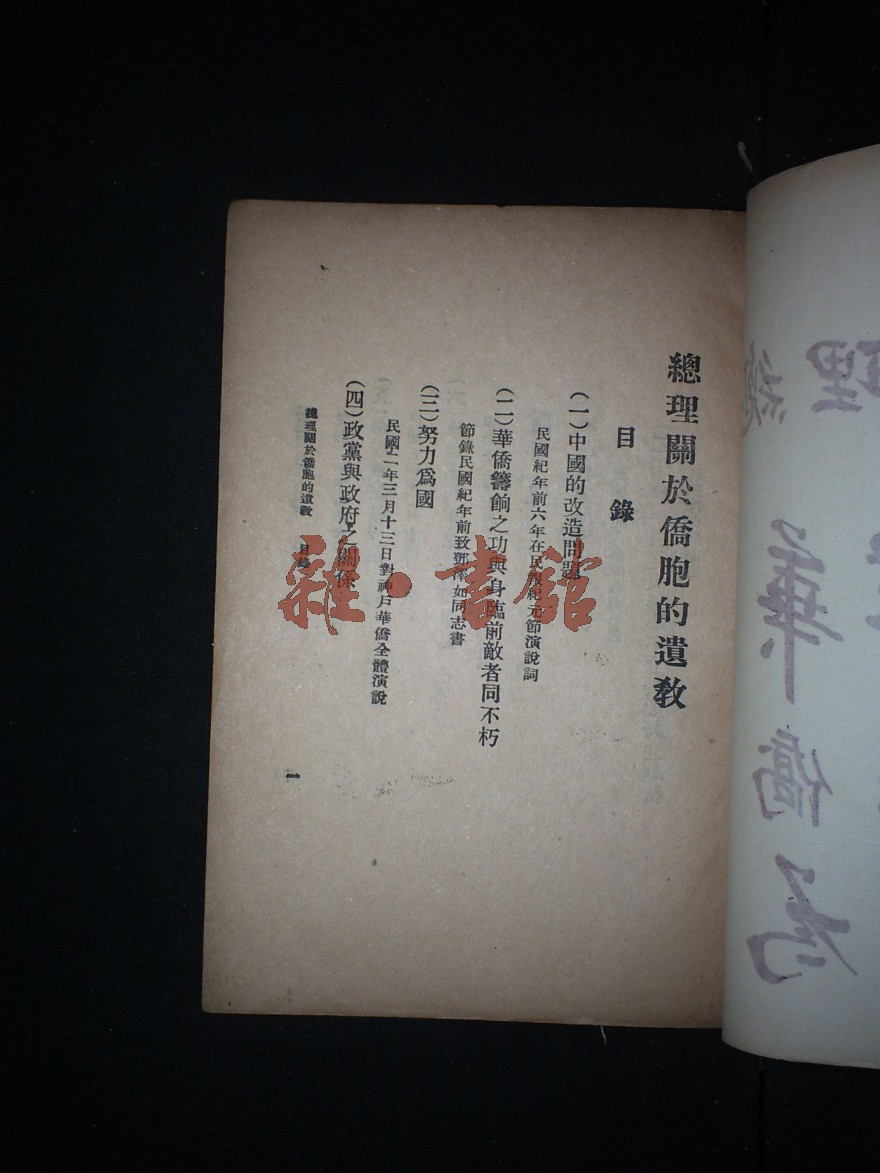 總理關於僑胞的遺敎
目錄
（一）中國的改造問題
民國紀年前六年在民報紀元節演說詞
（二）華僑籌餉之功與身臨前敵者同不朽
節錄民國紀年前致鄧澤如同志書
（三）努力爲國
民國二年三月十三日對神戶華僑全體演說
（四）政黨與政府之關係
總理關於僑胞的遺敎 目錄
一
雜·書館